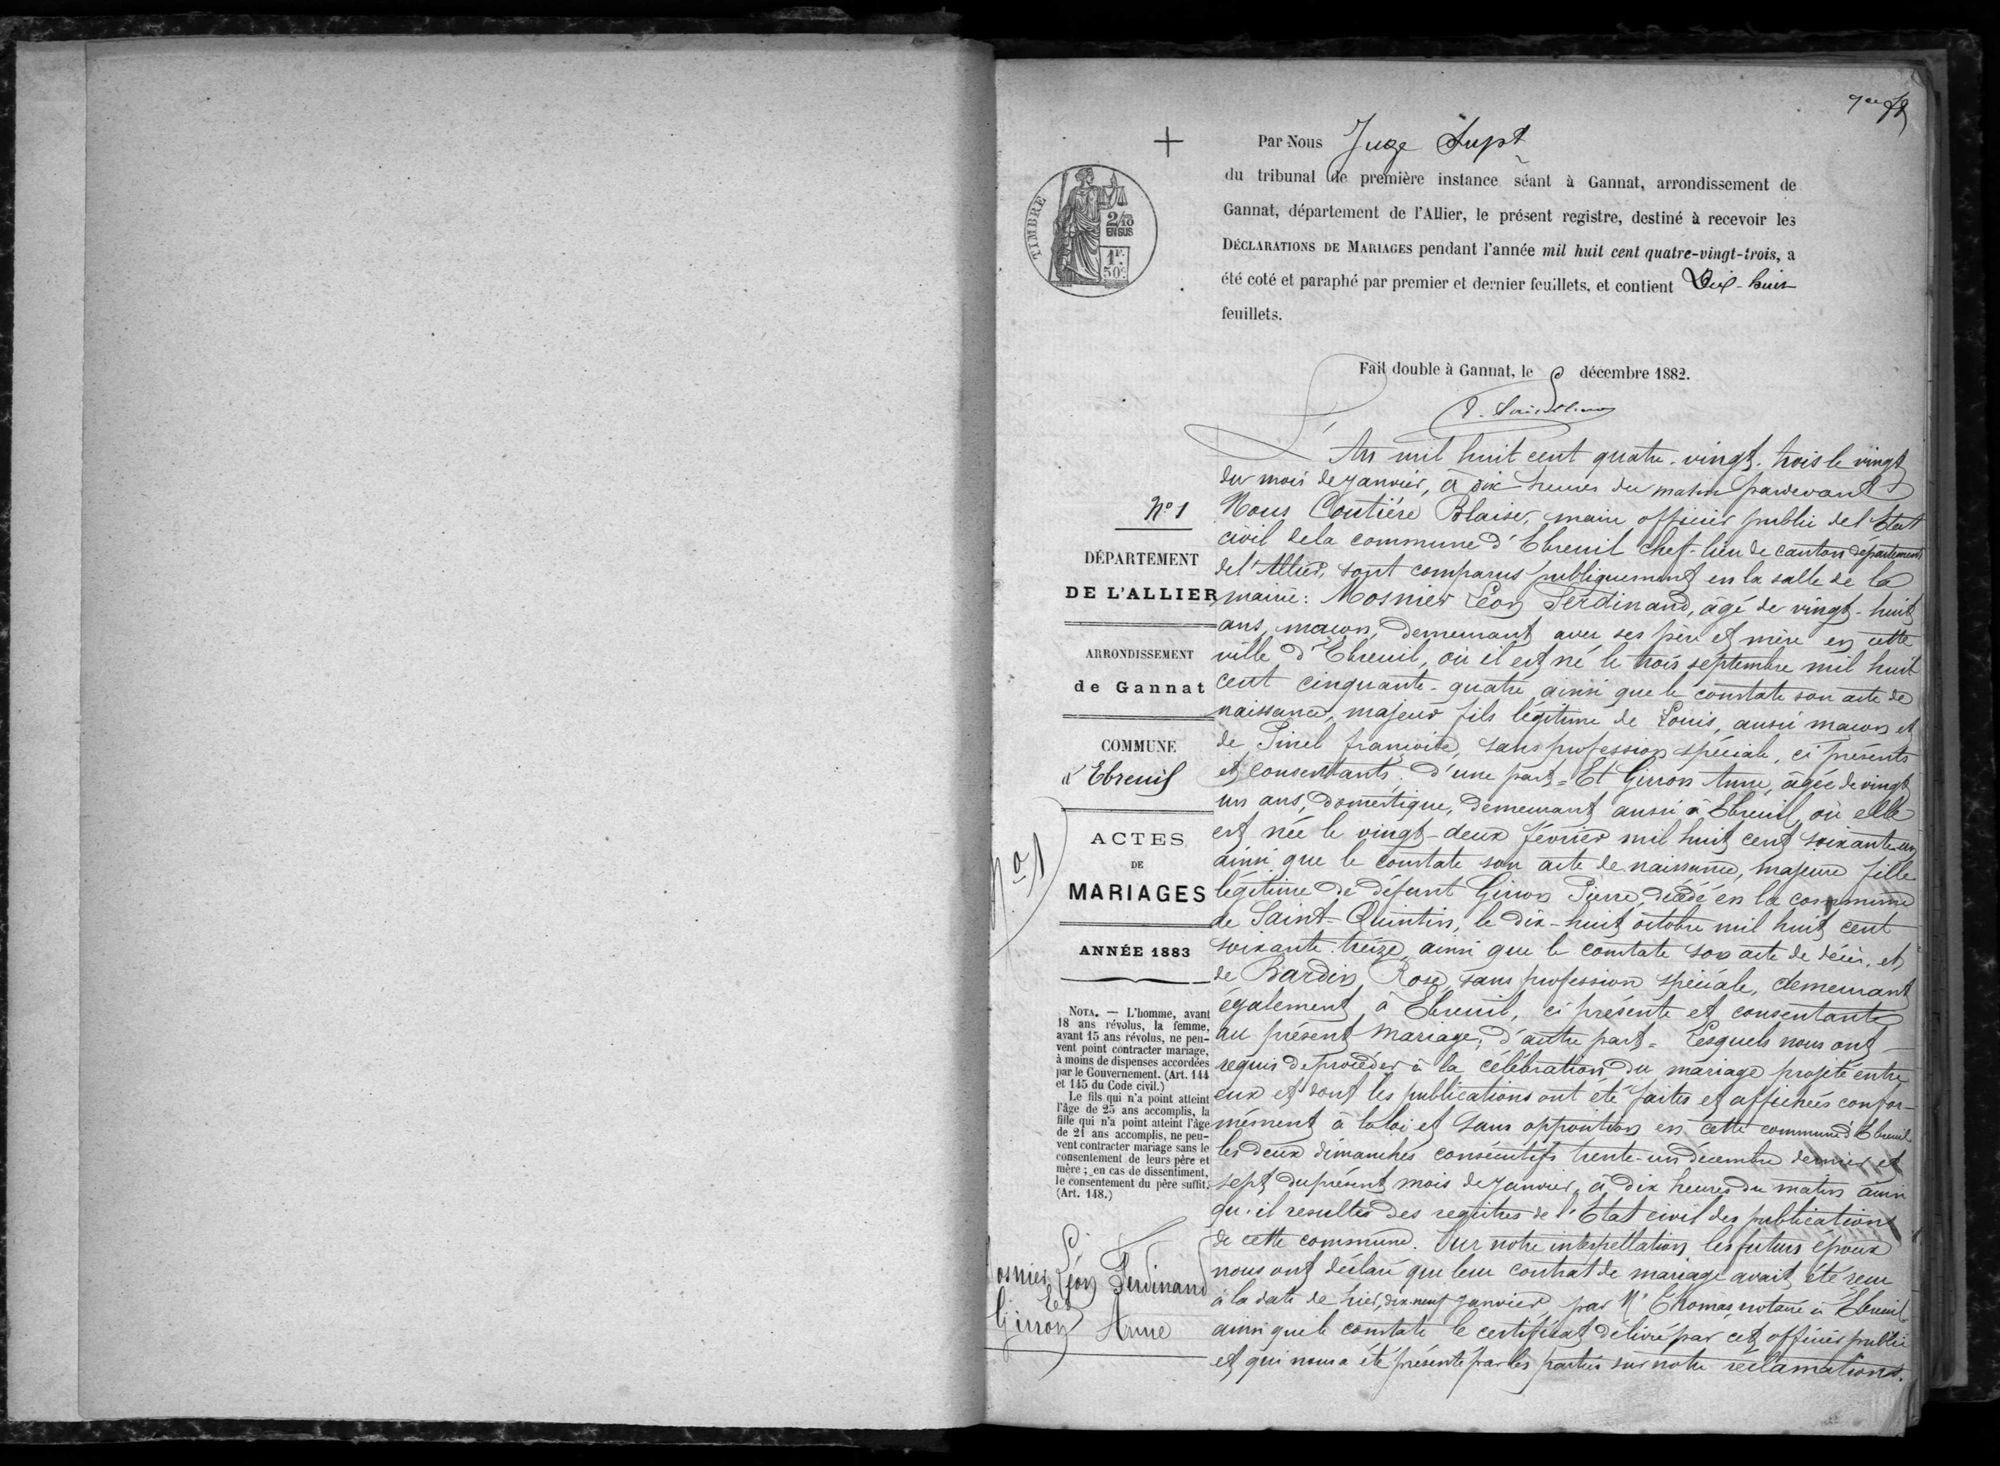 Par Nous Juge Supt
du tribunal de première instance séant à Gannat, arrondissement de
Gannat, département de l'Allier, le présent registre, destiné à recevoir les
DÉCLARATIONS DE MARIAGES pendant l'année mil huit cent quatre-vingt-trois, a
été coté et paraphé par premier et dernier feuillets, et contient Dix-huit
feuillets.
Fait double à Gannat, le décembre 1882.
TIMBRE
2/10
EN SUS
1F.
50c.
N° 1
DÉPARTEMENT
DE L'ALLIER
ARRONDISSEMENT
de Gannat
COMMUNE
d'Ebreuil
ACTES
DE
MARIAGES
ANNÉE 1883
N° 1
NOTA. — L'homme, avant
18 ans révolus, la femme,
avant 15 ans révolus, ne peu-
vent point contracter mariage,
à moins de dispenses accordées
par le Gouvernement. (Art. 144
et 145 du Code civil.)
Le fils qui n'a point atteint
l'âge de 25 ans accomplis, la
fille qui n'a point atteint l'âge
de 21 ans accomplis, ne peu-
vent contracter mariage sans le
consentement de leurs père et
mère ; en cas de dissentiment,
le consentement du père suffit.
(Art. 148.)
Mosnier Léon Ferdinand
Et
Girron Anne
L'An mil huit cent quatre-vingt-trois le vingt
du mois de janvier, à dix heures du matin pardevant
Nous Coutière Blaise, maire officier public de l'Etat
civil de la commune d'Ebreuil chef-lieu de canton département
de l'Allier, sont comparus publiquement en la salle de la
mairie: Mosnier Léon Ferdinand, âgé de vingt-huit
ans, maçon, demeurant avec ses père et mère en cette
ville d'Ebreuil, où il est né le trois septembre mil huit
cent cinquante-quatre, ainsi que le constate son acte de
naissance, majeur fils légitime de Louis, aussi maçon et
de Pinel françoise, sans profession spéciale, ci présents
et consentants. d'une part = Et Girron Anne, âgée de vingt
un ans, domestique, demeurant aussi à Ebreuil, où elle
est née le vingt-deux février mil huit cent soixante-un
ainsi que le constate son acte de naissance, majeure fille
légitime de défunt Girron Pierre, décédé en la commune
de Saint-Quintin, le dix-huit octobre mil huit cent
soixante-treize, ainsi que le constate son acte de décès, et
de Bardin Rose, sans profession spéciale, demeurant
également à Ebreuil, ci présente et consentante
au présent mariage, d'autre part = Lesquels nous ont
requis de procéder à la célébration du mariage projeté entre
eux et dont les publications ont été faites et affichées confor-
mément à la loi et sans opposition en cette commune d'Ebreuil
les deux dimanches consécutifs trente-un décembre dernier et
sept du présent mois de janvier, à dix heures du matin ainsi
qu'il resulte des registres de l'Etat civil des publications
de cette commune. Sur notre interpellation, les futurs époux
nous ont déclaré que leur contrat de mariage avait été reçu
à la date de hier, dix-neuf janvier, par Me Thomas notaire à Ebreuil
ainsi que le constate le certificat délivré par cet officier public
et qui nous a été présenté par les parties sur notre réclamation.